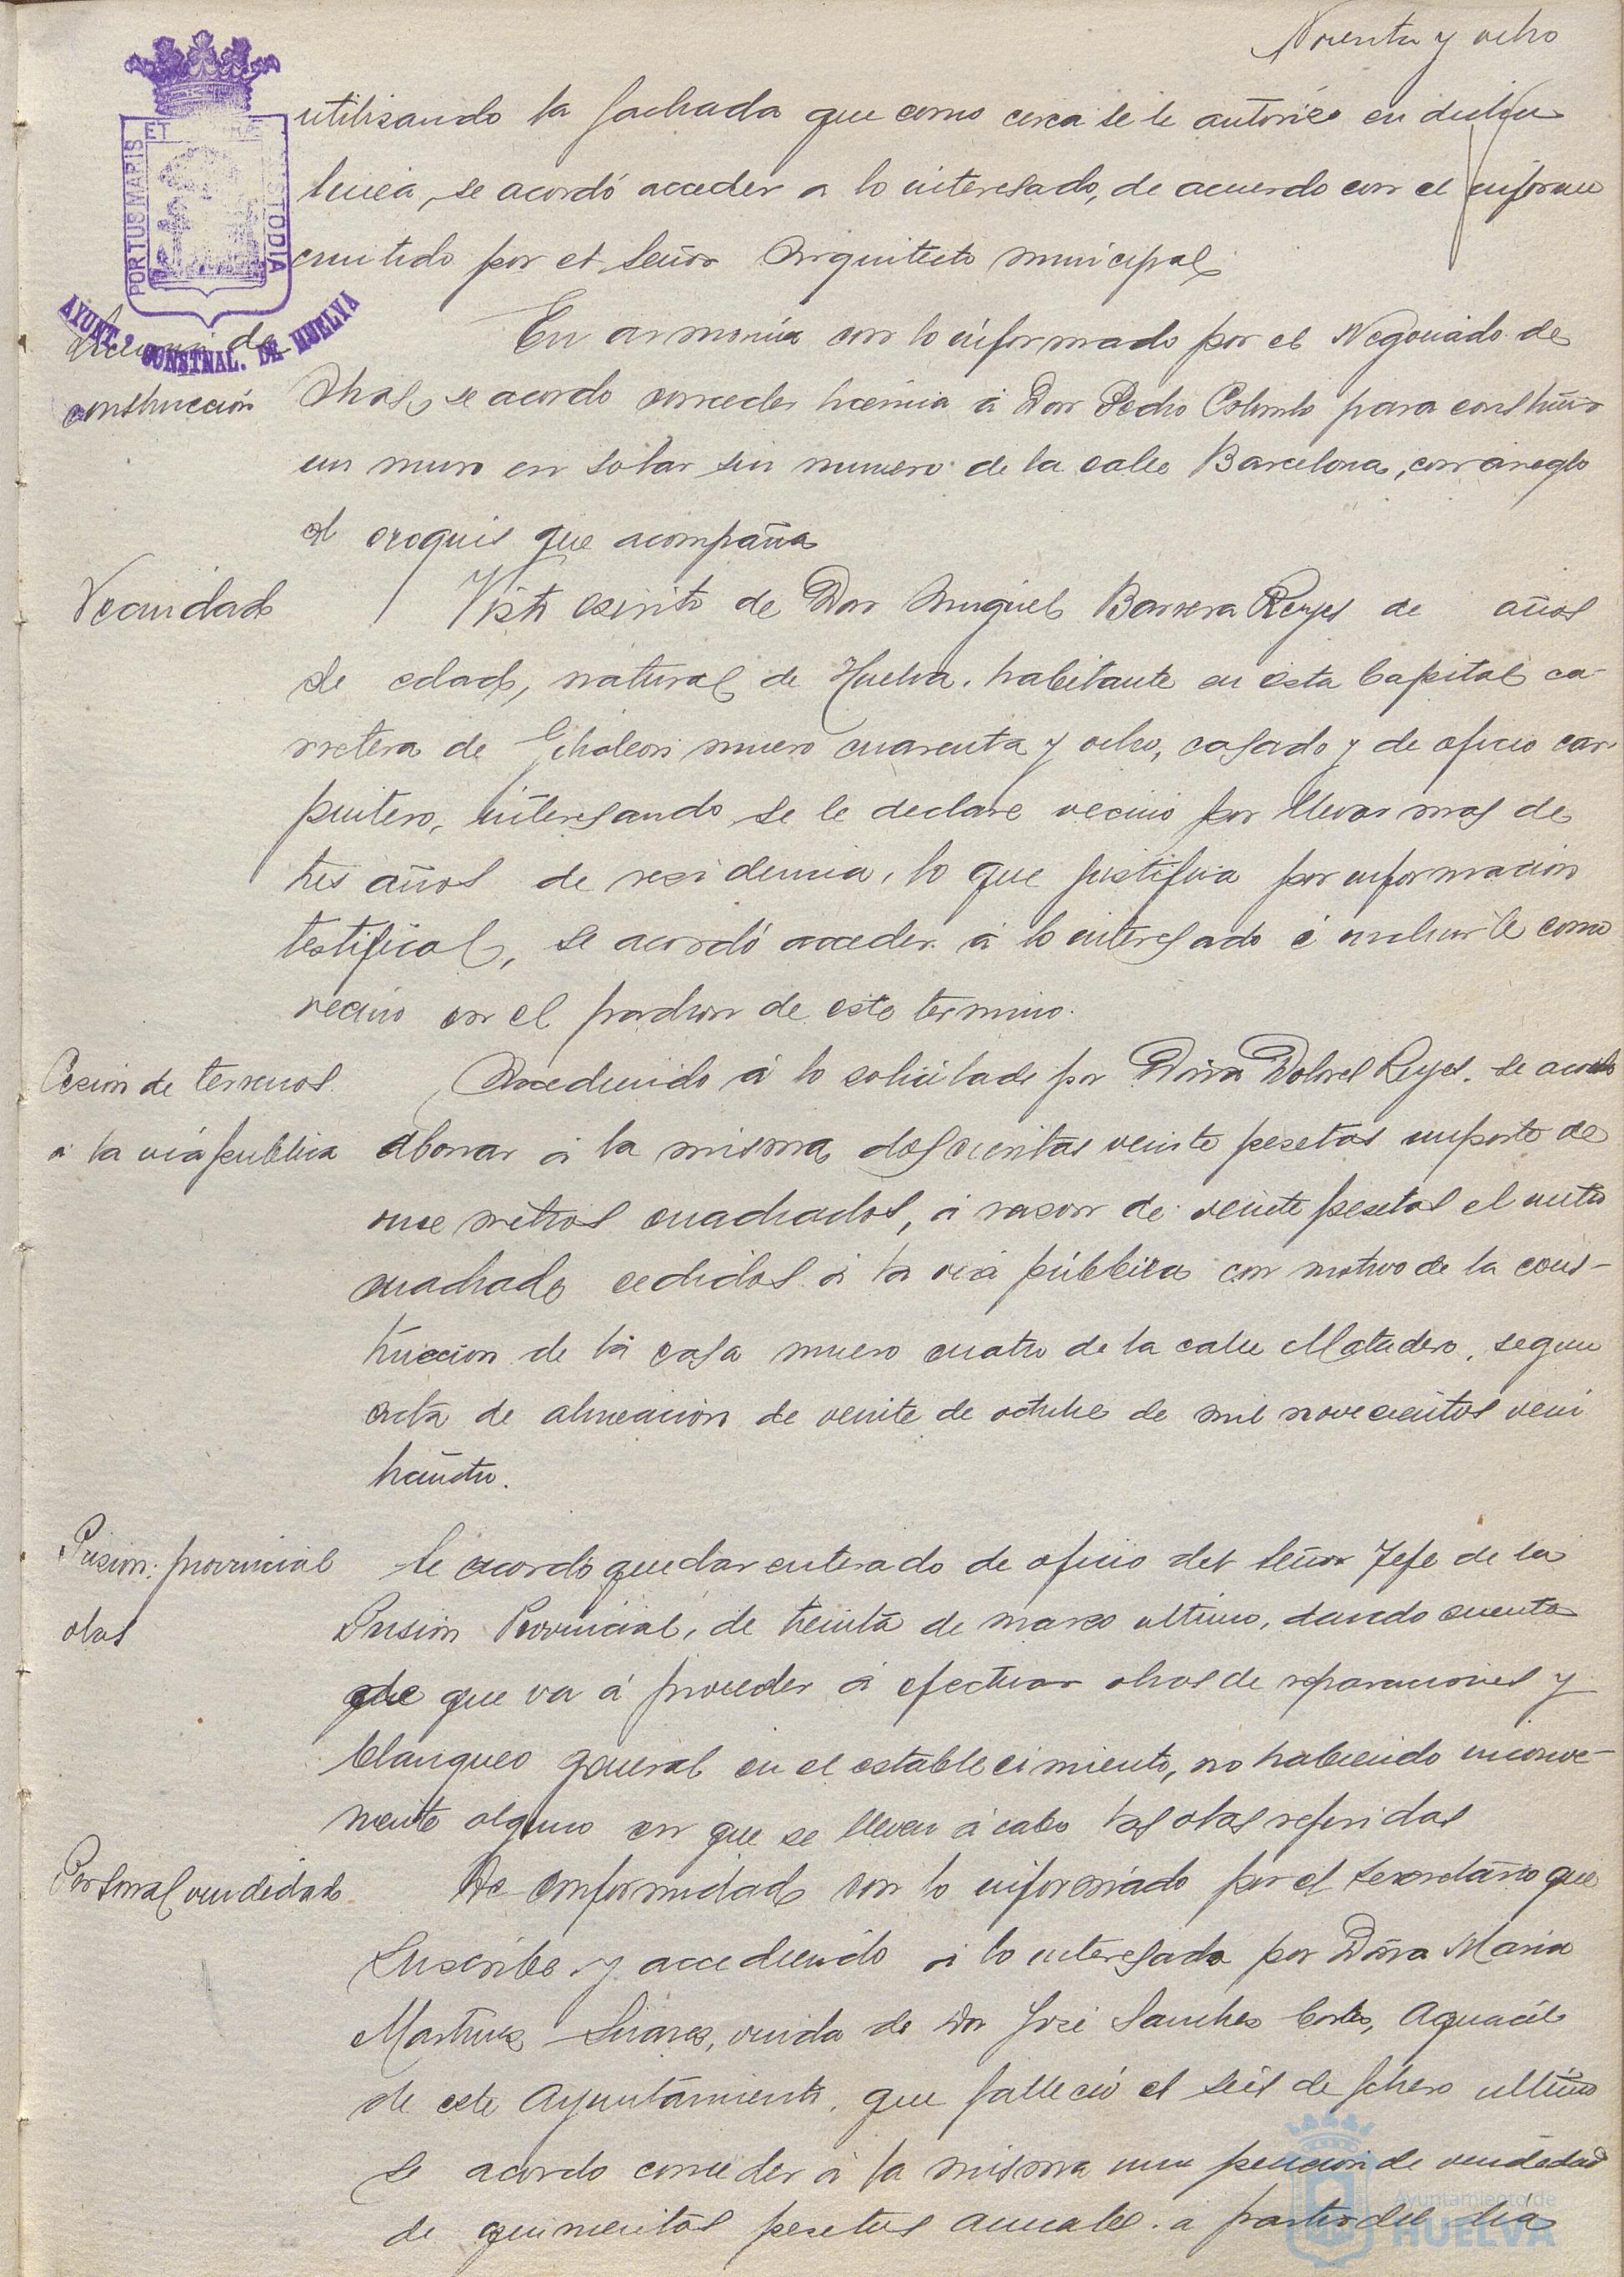 Noventa y ocho
utilizando la fachada que como cerca se le autorice en dicha
linea, se acordó acceder a lo interesado, de acuerdo con el informe
emitido por el Señor Arquitecto municipal
PORTUS MARIS ET CUSTODIA
AYUNT.º CONSTNAL. DE HUELVA
Licencia de
construcción
En armonia con lo informado por el Negociado de
Obras, se acordo conceder licencia á Don Pedro Colombo para construir
un muro en solar sin numero de la calle Barcelona, con arreglo
al croquis que acompaña
Vecindad
Visto escrito de Don Miguel Barrera Reyes de años
de edad, natural de Huelva, habitante en esta Capital ca-
rretera de Gibraleon numero cuarenta y ocho, casado y de oficio car-
pintero, interesando se le declare vecino por llevar mas de
tres años de residencia, lo que justifica por informacion
testifical, se acordó acceder á lo interesado é incluirle como
vecino en el padron de este termino.
Cesion de terrenos
a la via publica
Accediendo á lo solicitado por Doña Dolores Reyes, se acordo
abonar á la misma doscientas veinte pesetas importe de
once metros cuadrados, á razon de veinte pesetas el metro
cuadrado cedidos á la via pública con motivo de la cons-
truccion de la casa numero cuatro de la calle Matadero, segun
acta de alineacion de veinte de octubre de mil novecientos vein
ticuatro.
Prision provincial
obras
Se acordo quedar enterado de oficio del Señor Jefe de la
Prision Provincial, de treinta de marzo ultimo, dando cuenta
de que va á proceder á efectuar obras de reparaciones y
blanqueo general en el establecimiento, no habiendo inconve-
niente alguno en que se lleven á cabo las obras referidas
Personal viudedad
De conformidad con lo informado por el Secretario que
suscribe y accediendo á lo interesado por Doña Maria
Martinez Suarez, viuda de Don José Sanchez Cortes, Aguacil
de este Ayuntamiento, que falleció el seis de febrero ultimo
se acordo conceder á la misma una pension de viudedad
de quinientas pesetas anuales a partir del dia
Ayuntamiento de
HUELVA